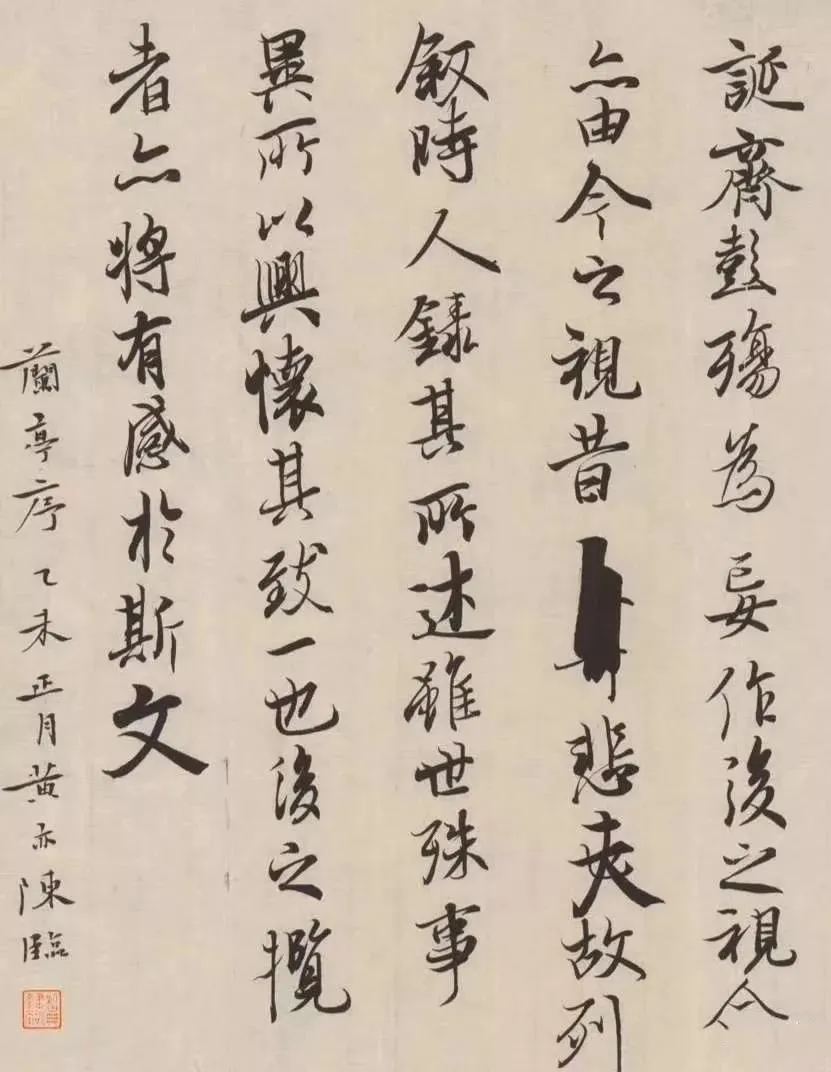 誕齊彭殤為妄作後之視今
亦由今之視昔悲夫故列
叙時人錄其所述雖世殊事
異所以興懷其致一也後之攬
者亦将有感於斯文
蘭亭序乙未正月黄亦陳臨